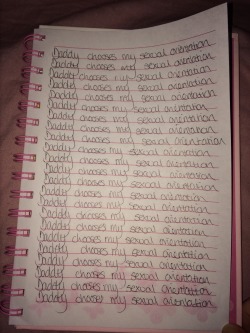 Daddy chooses my sexual orientation
Daddy chooses my sexual orientation
Daddy chooses my sexual orientation
Daddy chooses my sexual orientation
Daddy chooses my sexual orientation
Daddy chooses my sexual orientation
Daddy chooses my sexual orientation
Daddy chooses my sexual orientation
Daddy chooses my sexual orientation
Daddy chooses my sexual orientation
Daddy chooses my sexual orientation
Daddy chooses my sexual orientation
Daddy chooses my sexual orientation
Daddy chooses my sexual orientation
Daddy chooses my sexual orientation
Daddy chooses my sexual orientation
Daddy chooses my sexual orientation
Daddy chooses my sexual orientation
Daddy chooses my sexual orientation
Daddy chooses my sexual orientation
Daddy chooses my sexual orientation
Daddy chooses my sexual orientation
Daddy choose my sexual orientation